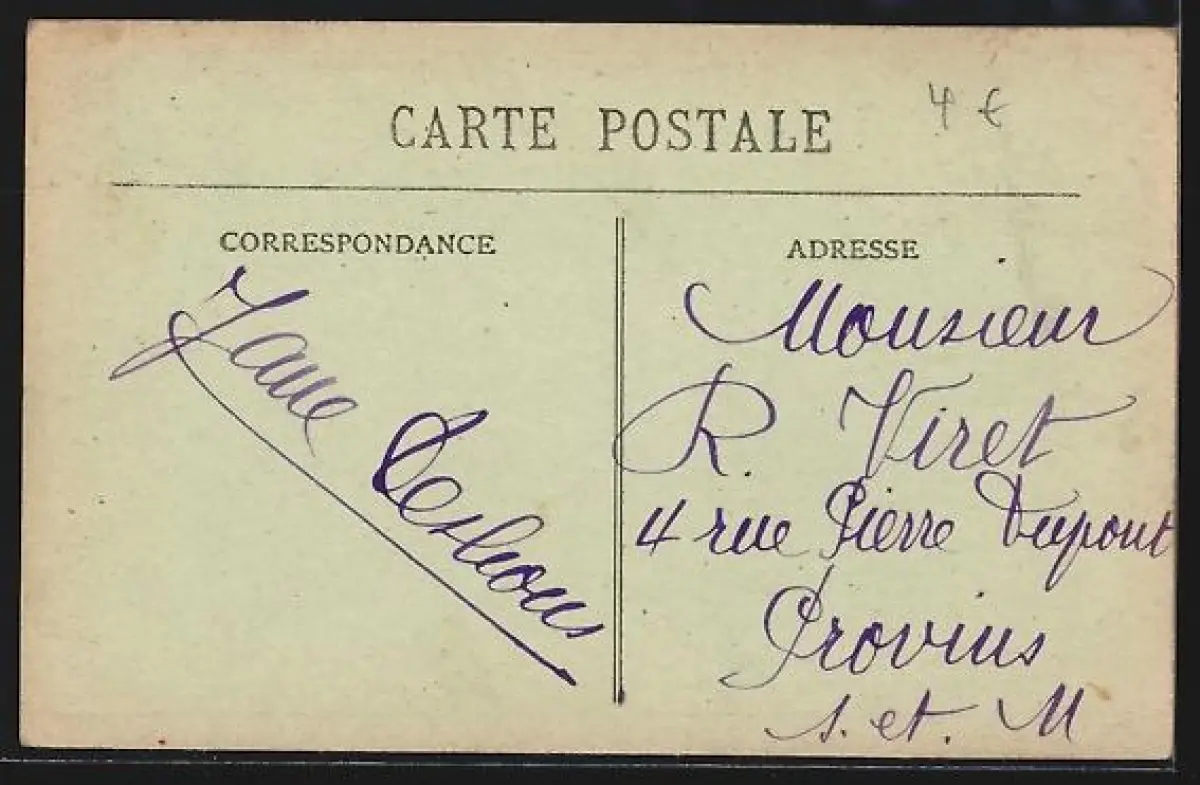 CARTE POSTALE
4 €
CORRESPONDANCE
Jane
ADRESSE
Monsieur
R. Viret
4 rue Pierre Dupont
Provins
S. et. M